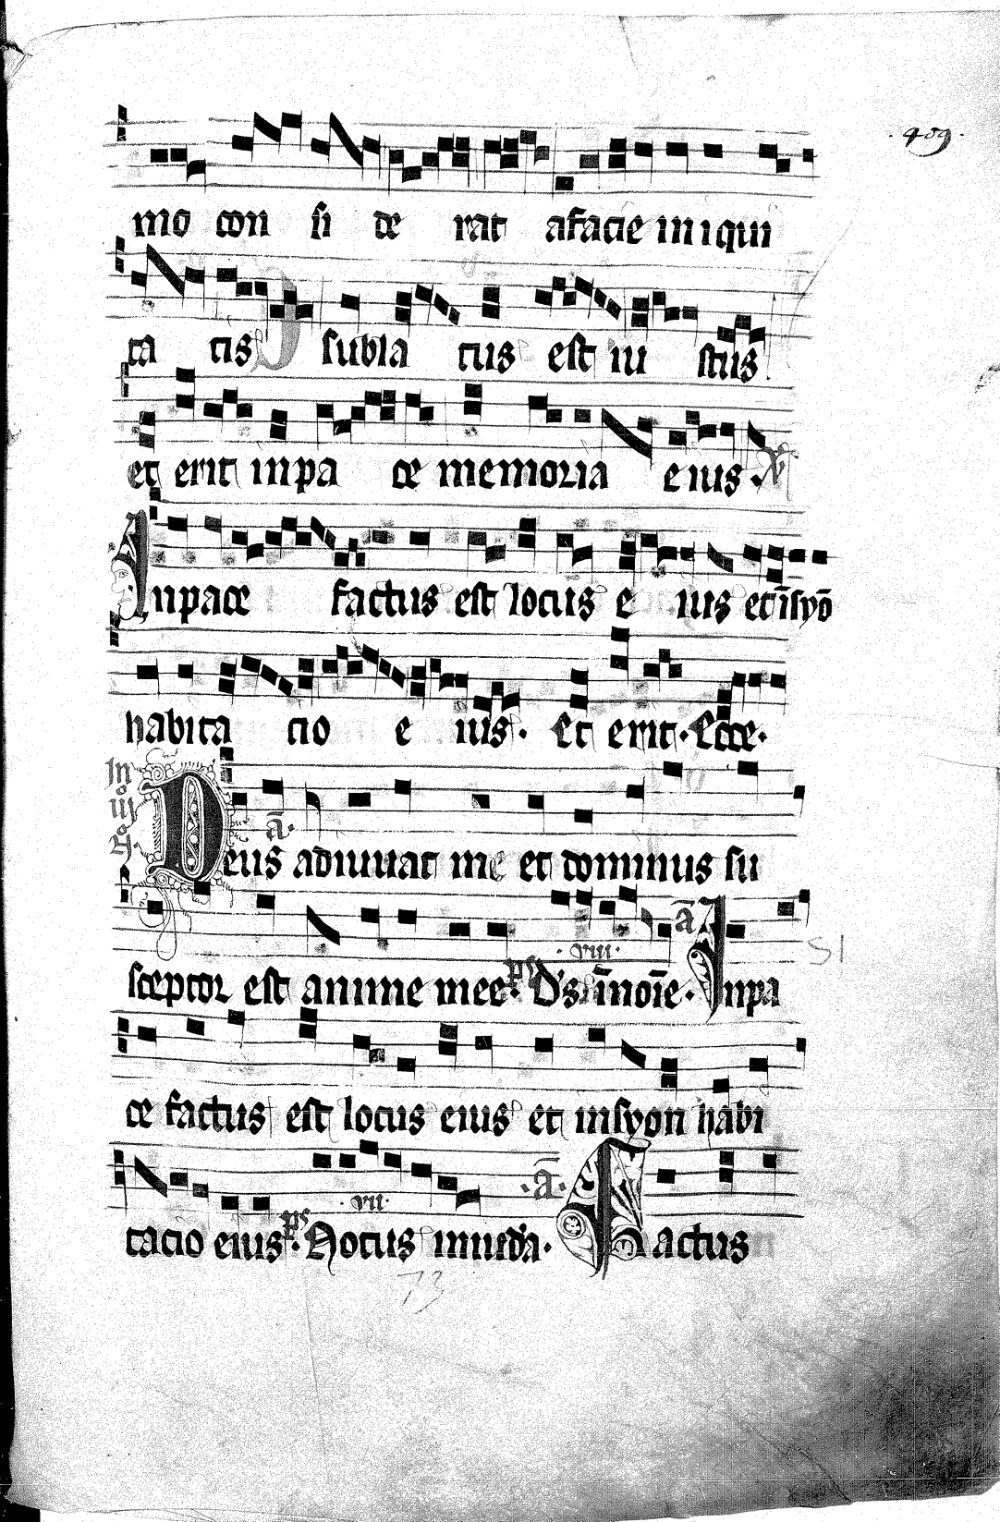 ·489·
mo con si de rat afacie iniqui
ta tis subla tus est iu stus
et erit inpa ce memoria eius·
Inpace factus est locus e ius et īsyō
habita cio e ius· Et erit· Ecce·
In iij
ā·
Deus adiuuat me et dominus su
ā
·viij·
sceptor est anime mee· ps D's īnoīe· Inpa
51
ce factus est locus eius et insyon habi
·vij·
·ā·
tacio eius· ps Notus iniud'a· Factus
73